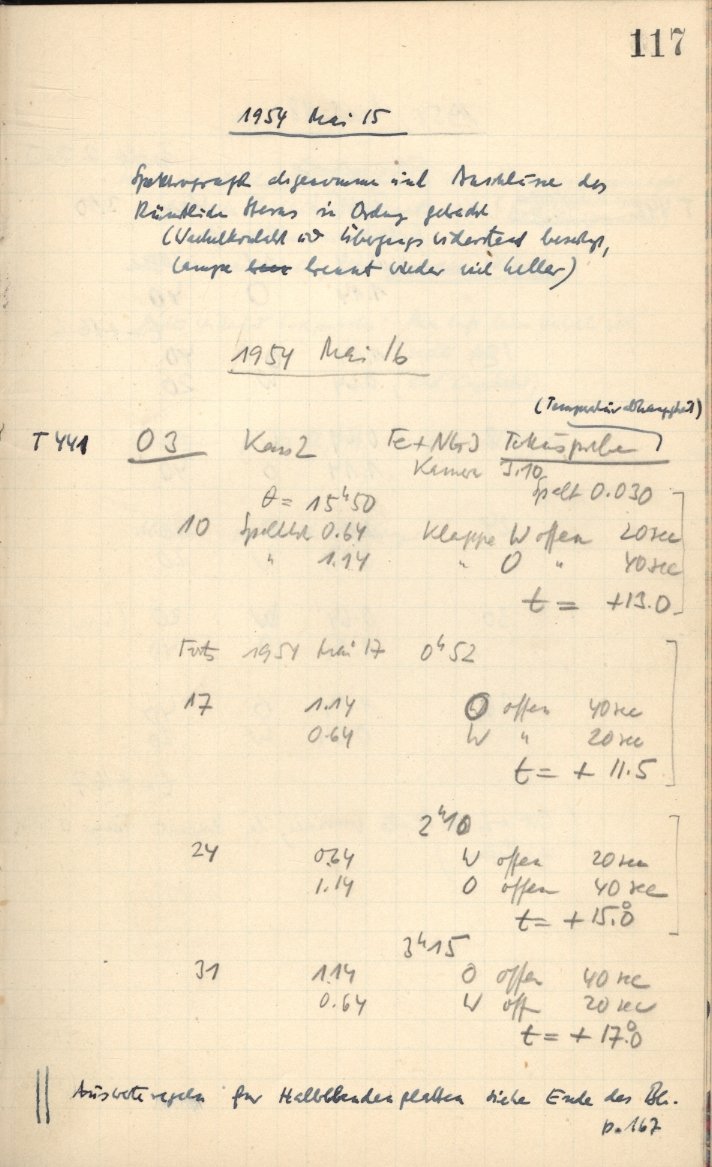 117
1954 Mai 15
Spektrograph abgenommen und Anschlüsse des
Künstlichen Sterns in Ordnung gebracht
(Wackelkontakt und Übergangswiderstand beseitigt,
Lampe brennt wieder viel heller)
1954 Mai 16
(Temperaturabhängigkeit)
T 441 O 3 Kass 2 Fe + Nbr 3
Kamera 3.10
Θ = 15ʰ50 Spalt 0.030
10 0.64 Klappe W offen 20 sec
" 1.14 " O " 40 sec
t = +13.0
Forts 1954 Mai 17 0ʰ52
17 1.14 O offen 40 sec
0.64 W " 20 sec
t = + 11.5
2ʰ10
24 0.64 W offen 20 sec
1.14 O offen 40 sec
t = + 15.°0
3ʰ15
31 1.14 O offen 40 sec
0.64 W off 20 sec
t = + 17.°0
für Halbblendenplatten siehe Ende des Bh.
p. 167